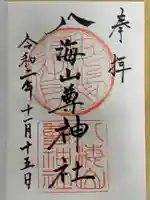 奉拝
八海山尊神社
令和二年十一月十五日